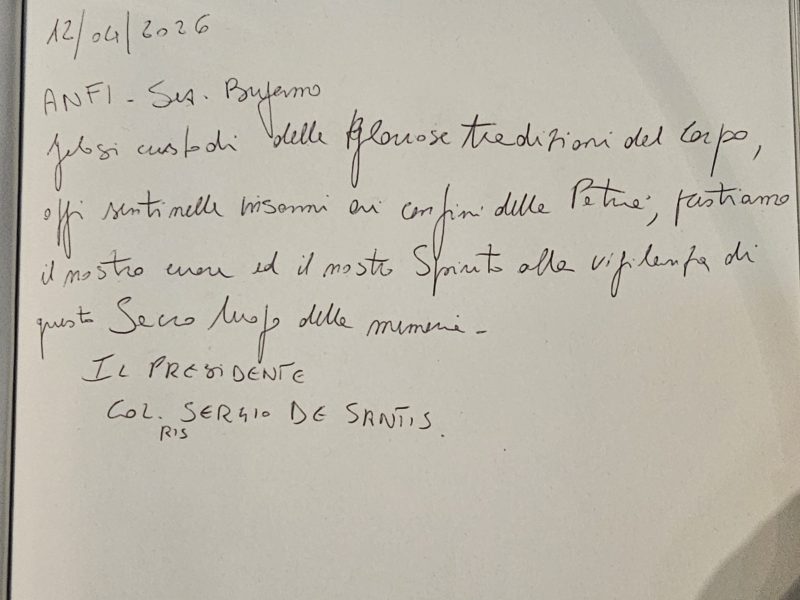 12/04/2026
ANFI - Sez.
Gelosi custodi delle gloriose tradizioni del Corpo,
oggi sentinelle insonni ai confini della Patria,
il nostro cuore ed il nostro Spirito alla vigilanza di
questo Sacro luogo della memoria -
IL PRESIDENTE
COL. SERGIO DE SANTIS.
RIS